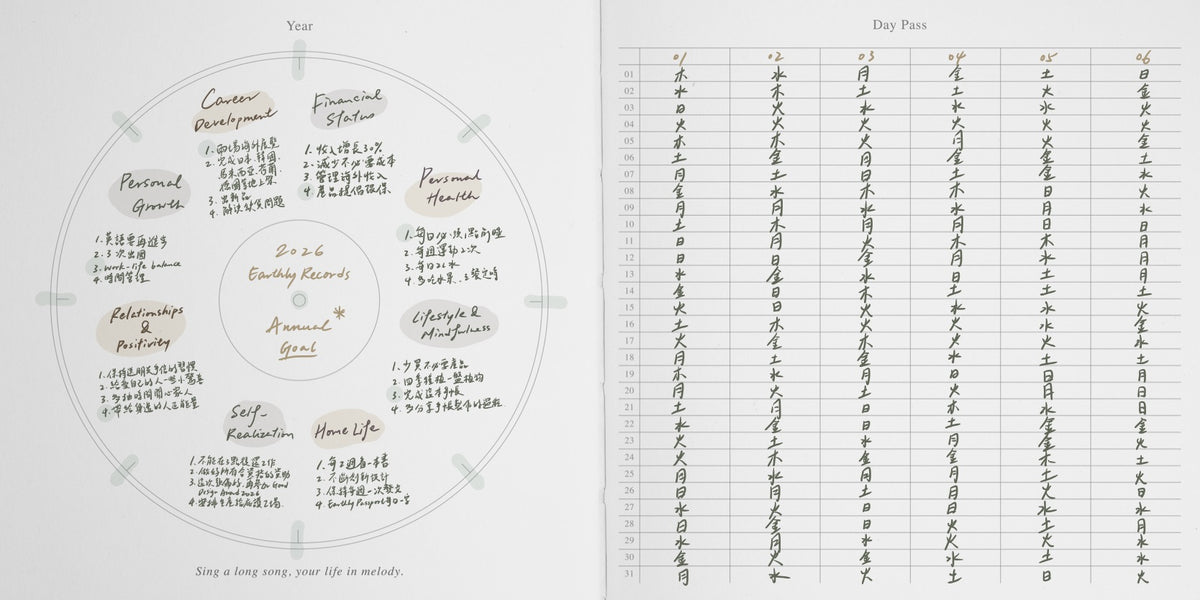 Year
Career
Development
1. 兩場海外展覽
2. 完成日本、韓國、
馬來西亞、荷蘭、
德國等地上架
3. 出新品
4. 解決缺貨問題
Financial
Status
1. 收入增長30%
2. 減少不必要成本
3. 管理海外收入
4. 產品提倡環保
Personal
Health
1. 每日必須1點前睡
2. 每週運動2次
3. 每日2L水
4. 多吃水果、3餐定時
Lifestyle &
Mindfulness
1. 少買不必要產品
2. 四季種植一盤植物
3. 完成這本手帳
4. 多分享手帳製作的過程
Home Life
1. 每2週看一本書
2. 不斷創新設計
3. 保持每週一次發文
4. Earthly Passport每日一篇
Self-
Realization
1. 不能在3點後還工作
2. 做好所有合資格的資助
3. 這次準備好，再參加 Good
Design Award 2026
4.
Relationships
&
Positivity
1. 保持送朋友手信的習慣
2. 給愛自己的人一些小驚喜
3. 多抽時間關心家人
4. 帶給身邊的人正能量
Personal
Growth
1. 英語要再進步
2. 3次出國
3. work-life balance
4. 時間管理
2026
Earthly Records
Annual *
Goal
Sing a long song, your life in melody.
Day Pass
01 02 03 04 05 06
01 木 水 月 金 土 日
02 水 木 土 土 火 金
03 日 火 水 水 水 火
04 火 火 火 火 火 火
05 木 木 火 月 金 金
06 土 金 月 金 金 土
07 月 土 日 土 金 水
08 金 水 木 木 日 火
09 月 月 水 水 月 水
10 土 木 月 火 日 日
11 日 月 火 月 木 月
12 日 日 金 木 水 月
13 水 金 水 日 土 月
14 金 日 木 土 土 土
15 火 日 火 水 水 火
16 土 木 火 火 水 金
17 火 金 木 火 火 水
18 月 土 金 水 土 土
19 木 水 月 日 日 月
20 月 火 土 火 月 日
21 土 月 日 木 水 日
22 水 金 日 土 金 金
23 火 土 水 月 金 火
24 火 木 金 金 木 土
25 月 水 月 月 土 火
26 日 月 土 月 火 日
27 水 火 日 日 水 水
28 日 金 日 火 土 月
29 水 月 水 火 火 水
30 金 火 金 水 土 水
31 月 水 火 土 日 火